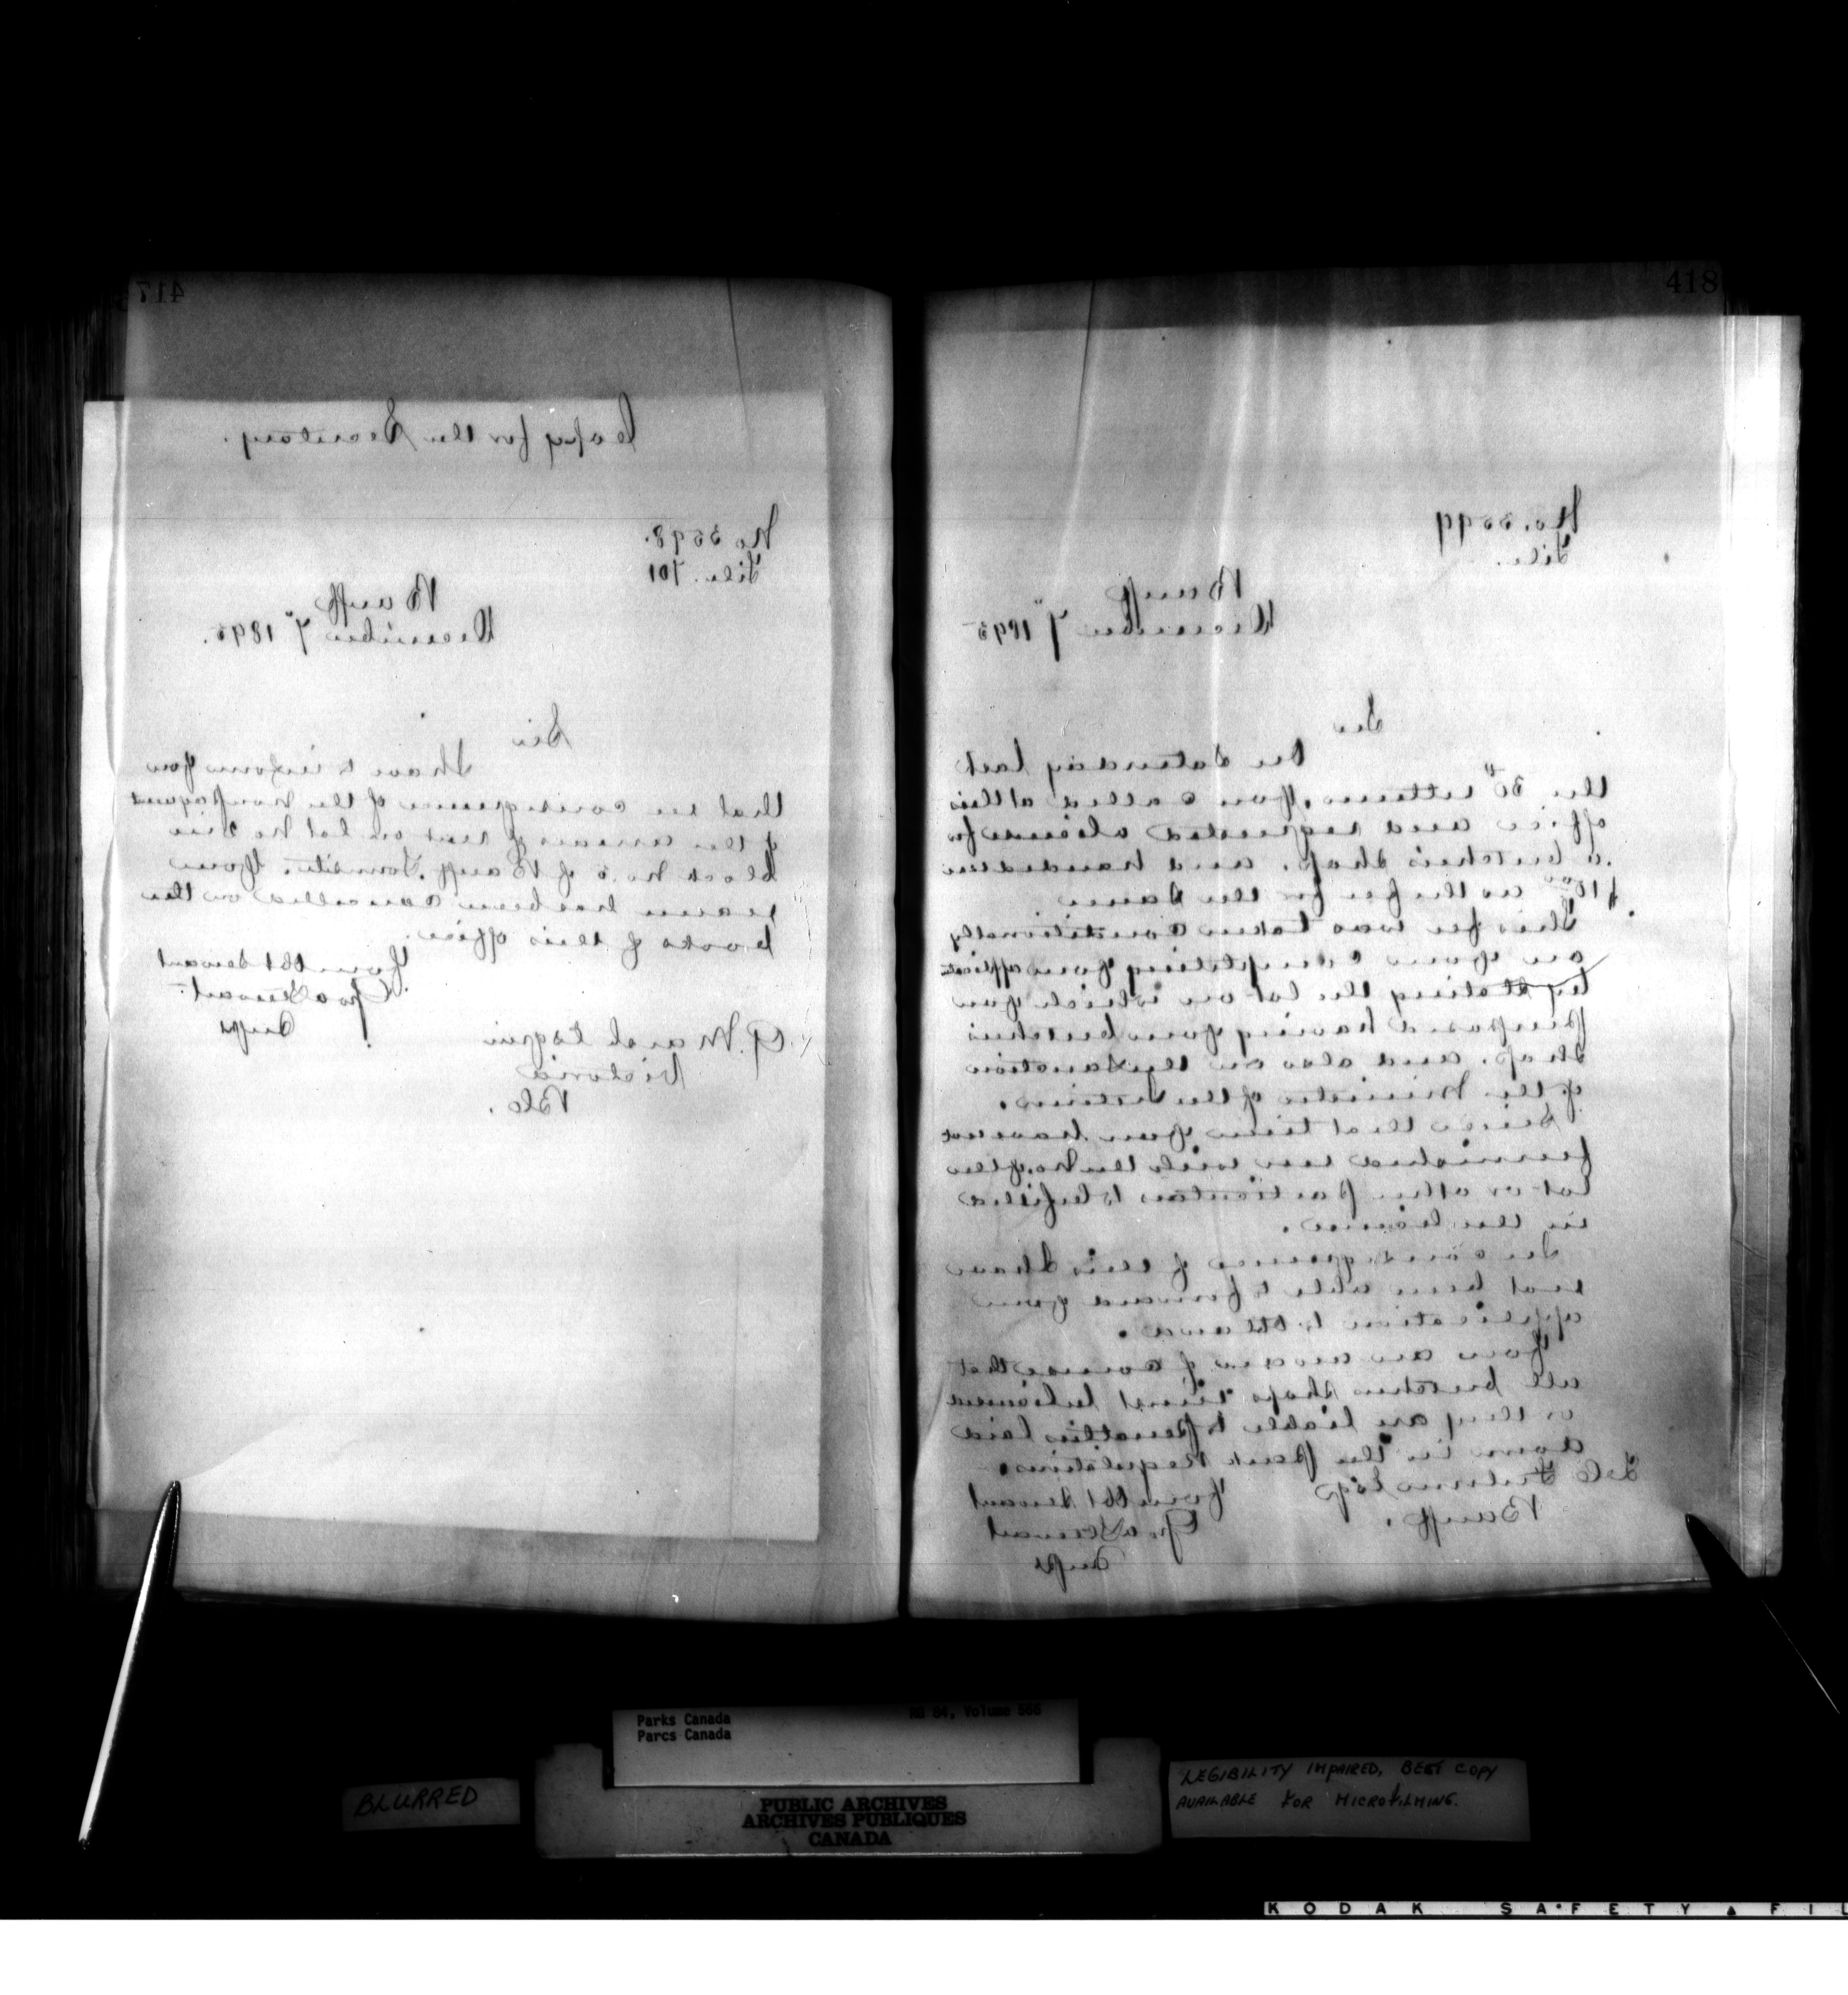 417
Copy for the Secretary.
No 3598.
File. 701
Banff
December 7" 1895.
Sir
I have to inform you
that in consequence of the nonpayment
of the arrears of rent on lot No
block No. 5 of Banff Townsite. Your
name has been cancelled on the
books of this office.
Your Obt Servant
Geo A Stewart
Supt
G. Marsh Esquire
Victoria
B.C.
418
No. 3599
File.
Banff
December 7" 1895
Sir
On Saturday last
the 30th ultimo, you called at this
office and requested a license for
a butchers shop. and handed in
as the fee for the same
This fee was taken conditionally
on your completing your application
by stating the lot on which you
purposed having your butchers
shop. and also on the sanction
of the Minister of the Interior.
Since that time you have not
furnished me with the No. of the
lot or other particulars to be filled
in the license.
In consequence of this I have
not been able to forward your
application to Ottawa.
You are aware of course that
all butchers shops must be licensed
or they are liable to penalties laid
down in the park regulations.
Your Obt Servant
Geo A Stewart
Supt
Esq
Banff.
Parks Canada
Parcs Canada
RG 84, Volume 566
BLURRED
PUBLIC ARCHIVES
ARCHIVES PUBLIQUES
CANADA
LEGIBILITY IMPAIRED, BEST COPY
AVAILABLE FOR MICROFILMING.
KODAK SAFETY FIL